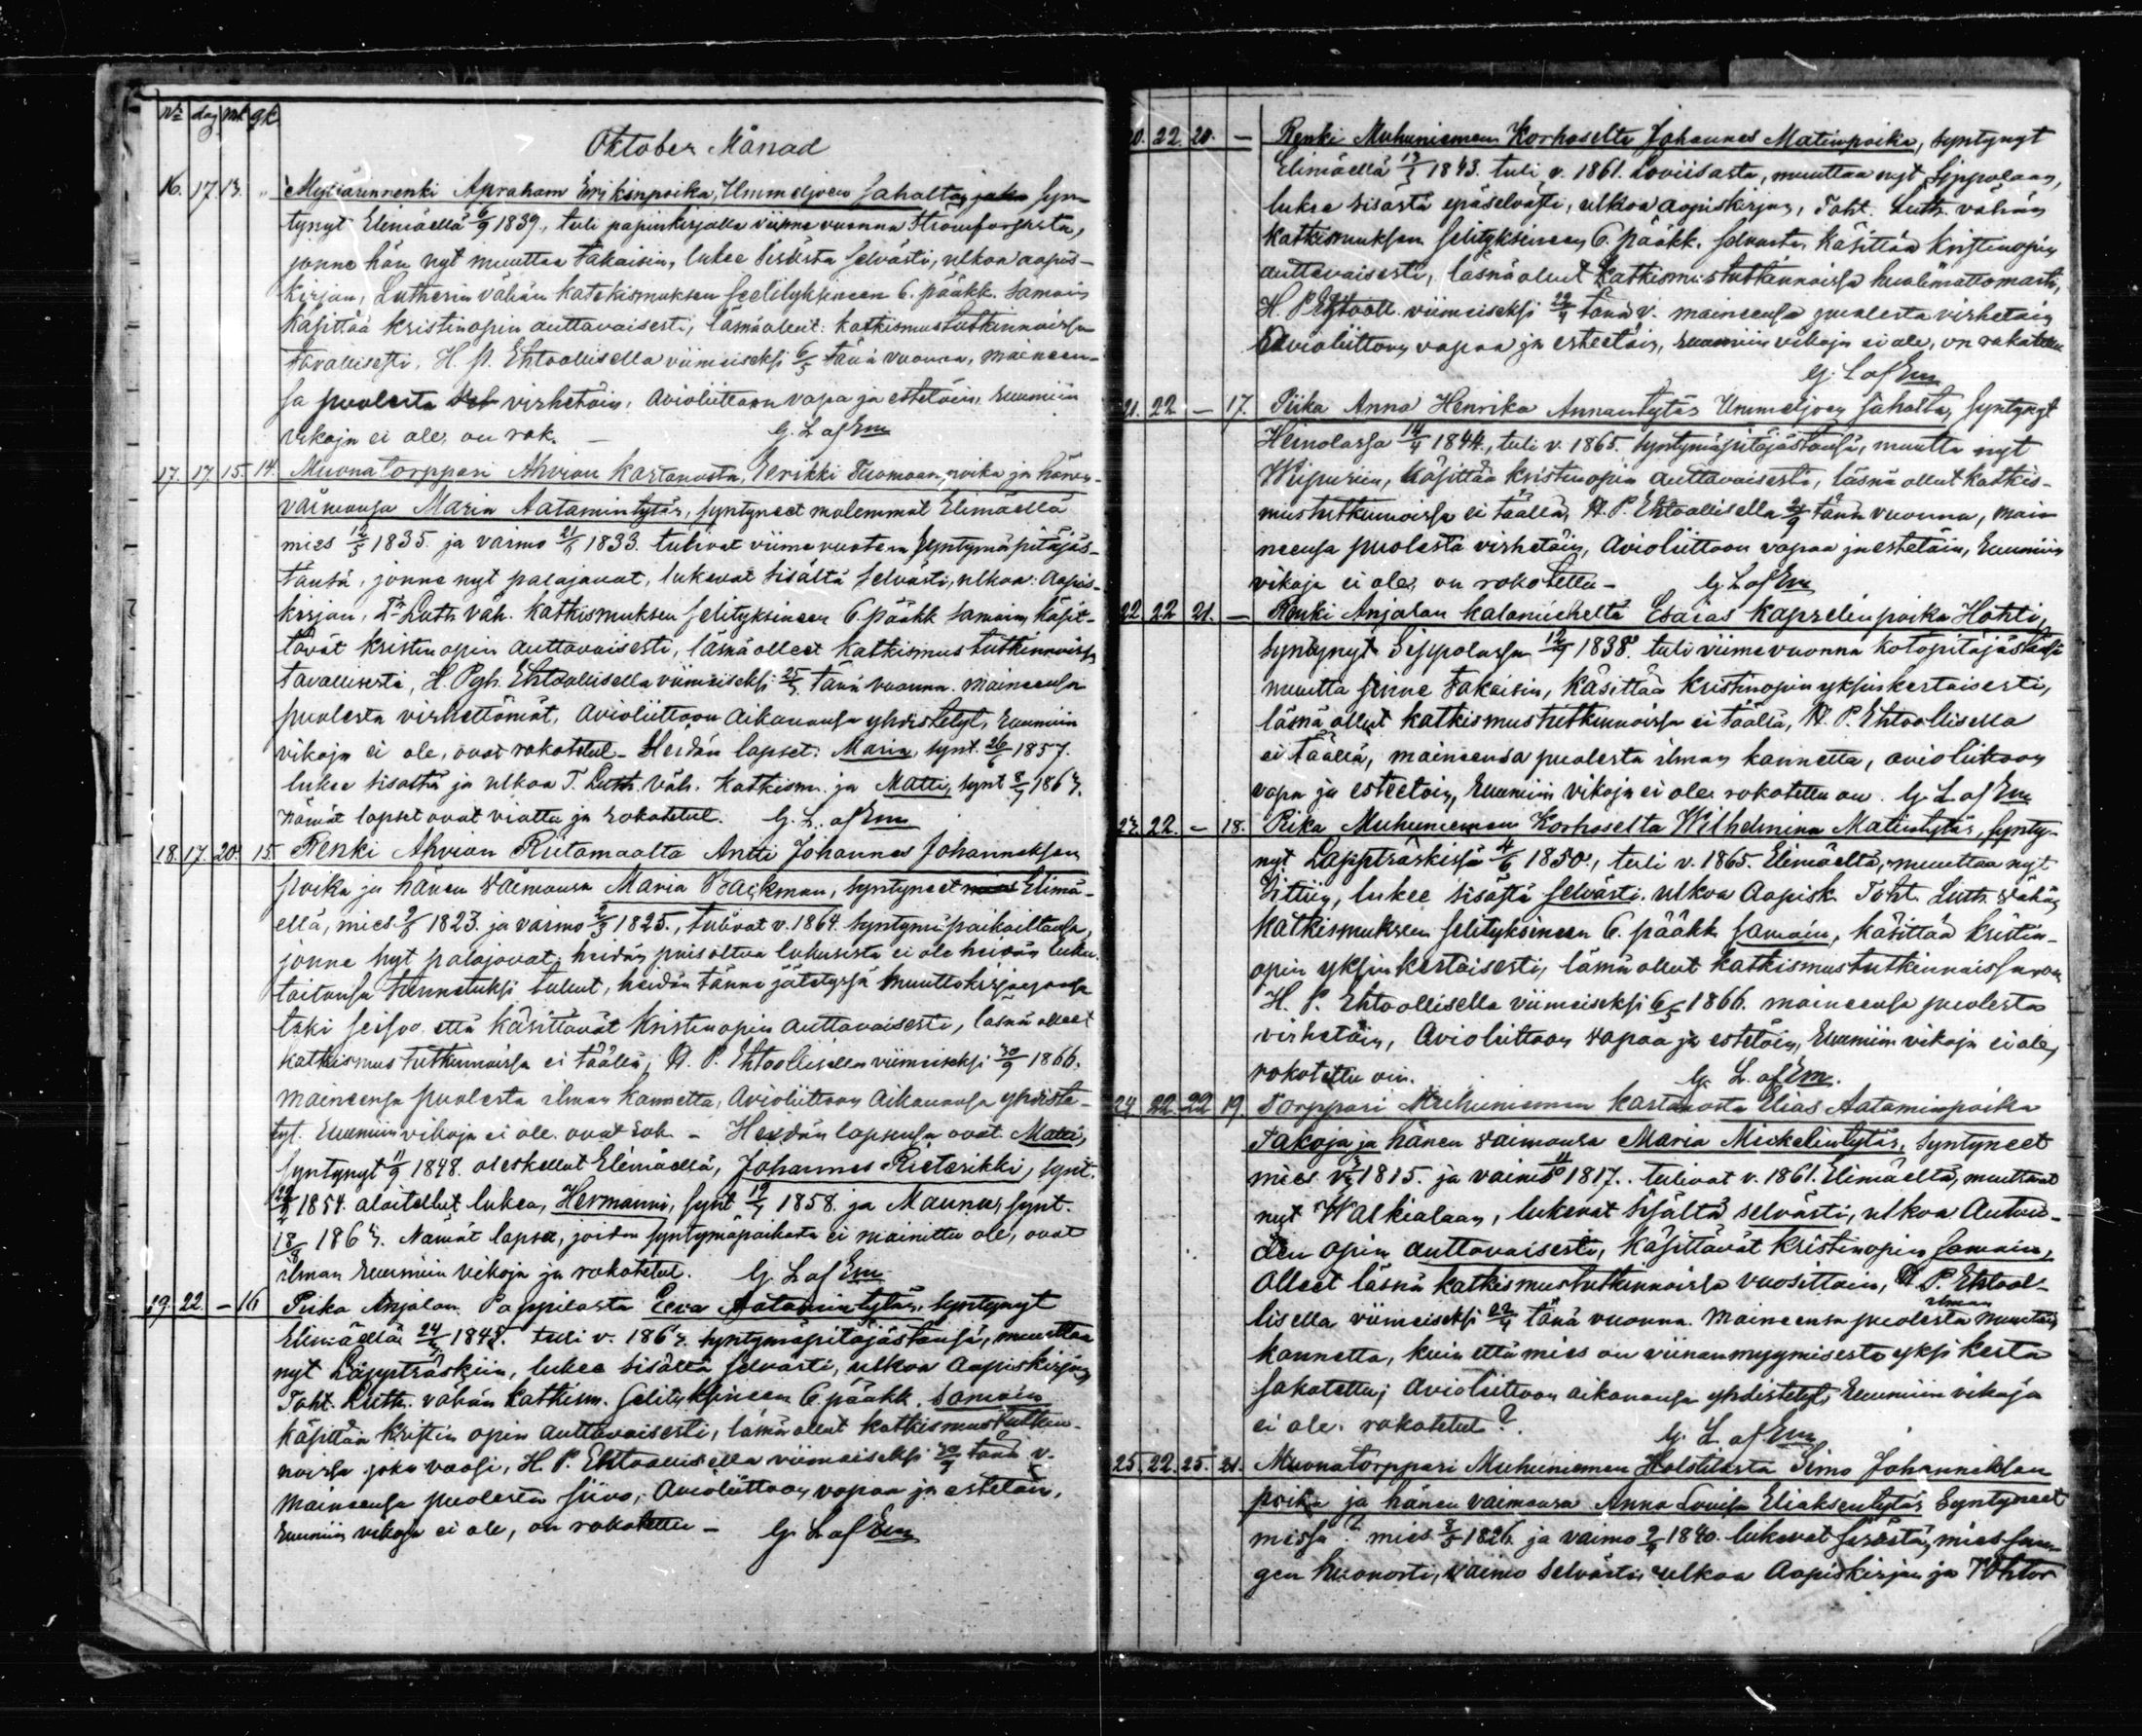 Nr dag mk qk
Oktober Månad
16. 17. 13. " Myllärinrenki Apraham Erikinpoika, Ummeljoen sahalta, syn-
tynyt Elimäellä 6/9 1839, tuli papinkirjalla viime vuonna Strömforssista,
jonne hän nyt muuttaa takaisin, lukee sisästä selvästi, ulkoa aapis-
kirjan, Lutherin vähän katekismuksen selityksineen 6. pääkk. samoin
käsittää kristinopin auttavaisesti, läsnäollut katkismustutkinnoissa
tavallisesti, H. P. Ehtoollisella viimeiseksi 6/5 tänä vuonna, maineen-
sa puolesta virhetöin, avioliittoon vapa ja estetöin, ruumiin
vikoja ei ole, on rok. — G. L af Em
17. 17. 15. 14. Muonatorppari Ahvion kartanosta, Eerikki Tuomaanpoika ja hänen
vaimonsa Maria Aatamintytär, syntyneet molemmat Elimäellä
mies 12/5 1835. ja vaimo 21/6 1833. tulivat viime vuotena syntymäpitäjäs-
tänsä, jonne nyt palajavat, lukevat sisältä selvästi, ulkoa: Aapis-
kirjan, T. Luth. väh. katkismuksen selityksineen 6. pääkk samoin, käsit-
tävät kristinopin auttavaisesti, läsnäolleet katkismustutkinnoissa
tavallisesti, H. Pyh. Ehtoollisella viimeiseksi 25/3 tänä vuonna. maineensa
puolesta virhettömät, avioliittoon aikanansa yhdistetyt, ruumiin
vikoja ei ole, ovat rokotetut - Heidän lapset: Maria, synt. 26/6 1857.
lukee sisältä ja ulkoa T. Luth. väh. Katkism. ja Matti, synt 8/7 1863.
nämät lapset ovat viatta ja rokotetut. G. L. af Em
18. 17. 20. 15. Renki Ahvion Riitamaalta Antti Johannes Johanneksen
poika ja hänen vaimonsa Maria Backman, syntyneet Elimä-
ellä, mies 9/6 1823. ja vaimo 2/3 1825., tulivat v. 1864. syntymäpaikoiltansa,
jonne nyt palajavat, heidän poisoltua lukusista ei ole heidän luku-
taitonsa tunnetuksi tullut, heidän tänne jätetyssä muuttokirjassansa
toki seisoo, että käsittävät kristinopin auttavaisesti, läsnä olleet
katkismustutkinnoissa ei täällä, H. P. Ehtoollisella viimeiseksi 30/9 1866.
maineensa puolesta ilman kannetta, avioliittoon aikanansa yhdiste-
tyt. Ruumiin vikoja ei ole. ovat rok. - Heidän lapsensa ovat Matti,
syntynyt 11/9 1848. oleskellut Elimäellä, Johannes Rieterikki, synt.
22/2 1854. aloitellut lukea, Hermanni, synt 19/4 1858. ja Maunus, synt.
18/8 1863. Nämät lapset, joiden syntymäpaikasta ei mainittu ole, ovat
ilman ruumiin vikoja ja rokotetut. G. L af Em
19. 22. - 16 Piika Anjalan Pappilasta Eeva Aatamintytär, syntynyt
Elimäellä 24/5 1848. tuli v. 1863. syntymäpitäjästänsä, muuttaa
nyt Lappträskiin, lukee sisältä selvästi, ulkoa Aapiskirjan
Toht. Luth. vähän katkism. selityksineen 6. pääkk. samoin
käsittää kristin opin auttavaisesti, läsnä ollut katkismustutkin-
noissa joka vuosi, H. P. Ehtoollisella viimeiseksi 30/9 tänä v.
maineensa puolesta siivo, avioliittoon vapaa ja estetöin,
ruumiin vikoja ei ole, on rokotettu - G. L af Em
20. 22. 20. — Renki Muhuniemen Korhoselta Johannes Matinpoika, syntynyt
Elimäellä 13/3 1843. tuli v. 1861. Loviisasta, muuttaa nyt Sippolaan,
lukee sisästä epäselvästi, ulkoa aapiskirjan, Toht. Luth. vähän
katkismuksen selityksineen 6. pääkk. selvästi, käsittää kristinopin
auttavaisesti, läsnäollut katkismustutkinnoissa huolimattomasti,
H. P. Ehtooll. viimeiseksi 22/4 tänä v. maineensa puolesta virhetöin
avioliittoon vapaa ja esteetöin, ruumiin vikoja ei ole, on rokotettu
G. L af Em
21. 22 — 17. Piika Anna Henrika Annantytär Ummeljoen sahalta, syntynyt
Heinolassa 14/4 1844., tuli v. 1865. syntymäpitäjästänsä, muutta nyt
Wiipuriin, käsittää kristinopin auttavaisesti, läsnä ollut katkis-
mustutkinnoissa ei täällä, H. P. Ehtoollisella 2/9 tänä vuonna, mai-
neensa puolesta virhetöin, avioliittoon vapaa ja estetöin, ruumiin
vikoja ei ole, on rokotettu - G. L af Em
22 22 21. — Renki Anjalan kalamieheltä Esaias Kaprelinpoika Hohti,
syntynyt Sippolassa 12/7 1838. tuli viime vuonna kotopitäjästänsä
muutta sinne takaisin, käsittää kristinopin yksinkertaisesti,
läsnä ollut katkismustutkinnoissa ei täällä, H. P. Ehtoollisella
ei täällä, maineensa puolesta ilman kannetta, avioliittoon
vapa ja esteetöin, ruumiin vikoja ei ole, rokotettu on. G. L af Em
23. 22. - 18. Piika Muhuniemen Korhoselta Wilhelmina Matintytär, synty-
nyt Lappträskissä 4/6 1850, tuli v. 1865 Elimäeltä, muuttaa nyt
Iittiin, lukee sisästä selvästi. ulkoa Aapisk. Toht. Luth. vähän
katkismuksen selityksineen 6. pääkk. samoin, käsittää kristin-
opin yksinkertaisesti, läsnä ollut katkismustutkinnoissa
H. P. Ehtoollisella viimeiseksi 6/5 1866. maineensa puolesta
virhetöin, avioliittoon vapaa ja estetöin, ruumiin vikoja ei ole,
rokotettu on. G. L. af Em.
24 22 22 19. Torppari Muhuniemen kartanosta Elias Aataminpoika
Takoja ja hänen vaimonsa Maria Mickelintytär, syntyneet
mies 1815. ja vaimo 1817. tulivat v. 1861. Elimäeltä, muuttavat
nyt Walkialaan, lukevat sisältä selvästi, ulkoa Autuu-
den opin auttavaisesti, käsittävät kristinopin samoin,
olleet läsnä katkismustutkinnoissa vuosittain, H. P. Ehtool-
lisella viimeiseksi 22/4 tänä vuonna. Maineensa puolesta ilman muutoin
kannetta, kuin että mies on viinanmyymisestä yksi kerta
sakotettu; avioliittoon aikanansa yhdistetyt, ruumiin vikoja
ei ole. rokotetut?.
G. L. af Em
25. 22. 25. 21. Muonatorppari Muhuniemen Holstilasta Simo Johanneksen
poika ja hänen vaimonsa Anna Lovisa Eliaksentytär syntyneet
missä? mies 8/5 1826 ja vaimo 9/4 1840. lukevat sisästä, mies san-
gen huonosti, vaimo selvästi, ulkoa Aapiskirjan ja Tohtor